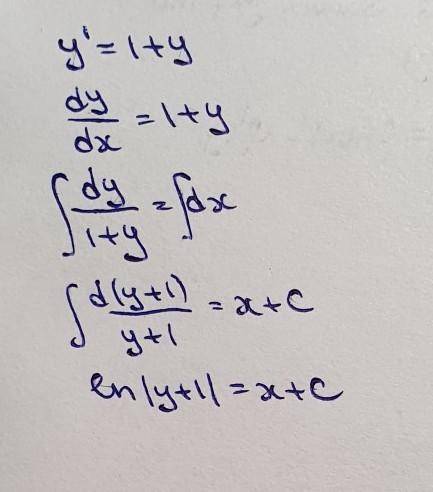 y' = 1+y
dy/dx = 1+y
∫ dy/1+y = ∫dx
∫ d(y+1)/y+1 = x+C
ln|y+1| = x+C